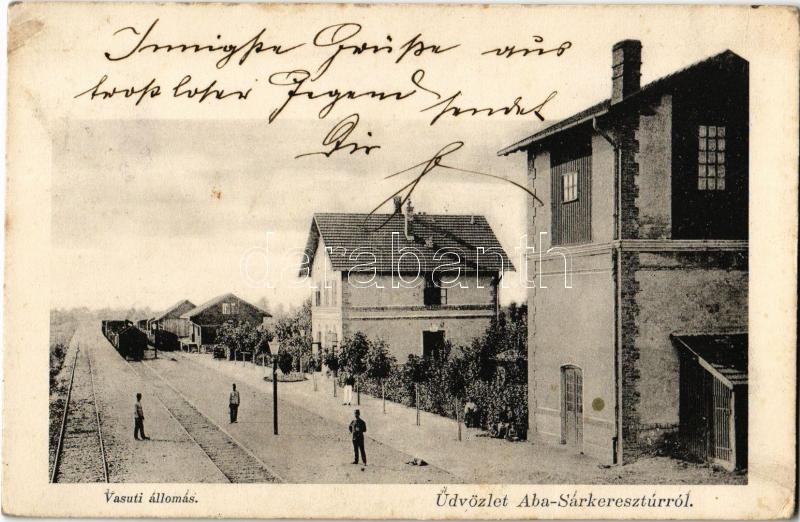 Innigste Grüße aus
trostloser Gegend sendet
Dir
darabanth
Vasuti állomás.
Üdvözlet Aba-Sárkeresztúrról.